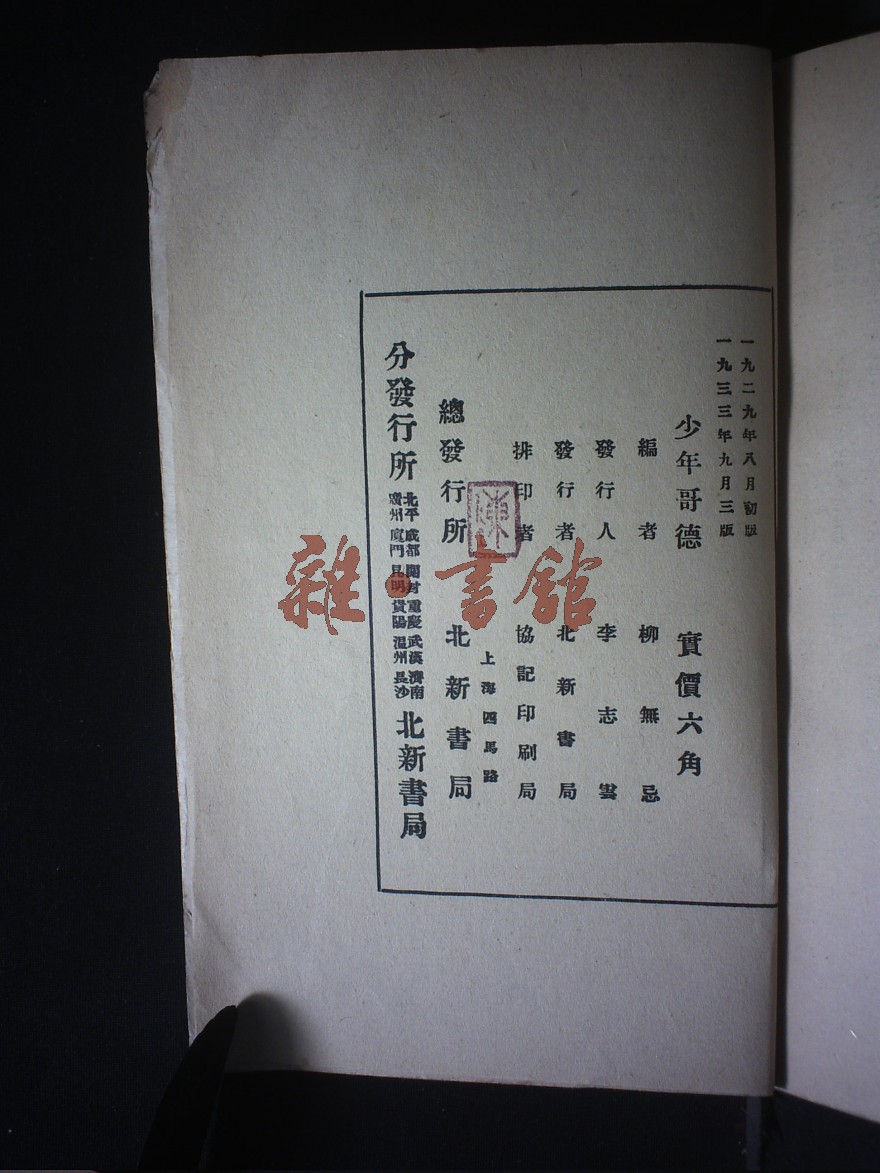 一九二九年八月初版
一九三三年九月三版
少年哥德 實價六角
編者 柳無忌
發行人 李志雲
發行者 北新書局
排印者 協記印刷局
上海四馬路
總發行所 北新書局
分發行所 北平 成都 開封 重慶 武漢 濟南 廣州 廈門 昆明 貴陽 溫州 長沙 北新書局
陳
雜·書館